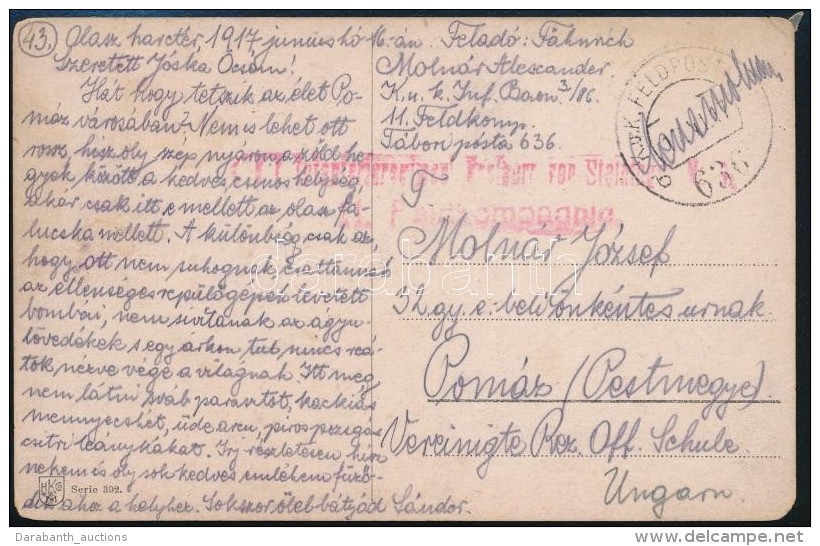 43.
Olasz harctér, 1917 junius hó 16.-án. Feladó: Fähnrich
Szeretett Jóska Öcsém!
Hát hogy tetszik az élet Po-
máz városában? Nem is lehet ott
rossz, hisz oly szép nyáron a zöld he-
gyek között a kedves csinos helység,
akár csak itt e mellett az olasz fa-
lucska mellett. A különbség csak az,
hogy ott nem suhognak, csattannak
az ellenséges repülőgépek levetett
bombái, nem sivítanak az ágyu-
lövedékek s egy árkon tul nincs reá-
tok nézve vége a világnak. Itt meg
nem látni sváb parasztot, kackiás
menyecskét, üde arcu, pirospozsgás
csitri leánykákat. Irj részletesen hisz
nekem is oly sok kedves emlékem fűző-
dik ahoz a helyhez. Sokszor ölel bátyád Sándor.
HKC
Serie 392.
Molnár Alexander.
K. u. k. Inf. Baon 3/86.
11. Feldkomp.
Tábori pósta 636.
K.u.K. FELDPOST
636
T.
Molnár József
32. gy. e. beli önkéntes urnak
Pomáz (Pestmegye)
Vereinigte Rez. Off. Schule.
Ungarn
darabanth
© Darabanth_auctions
delcampe.net